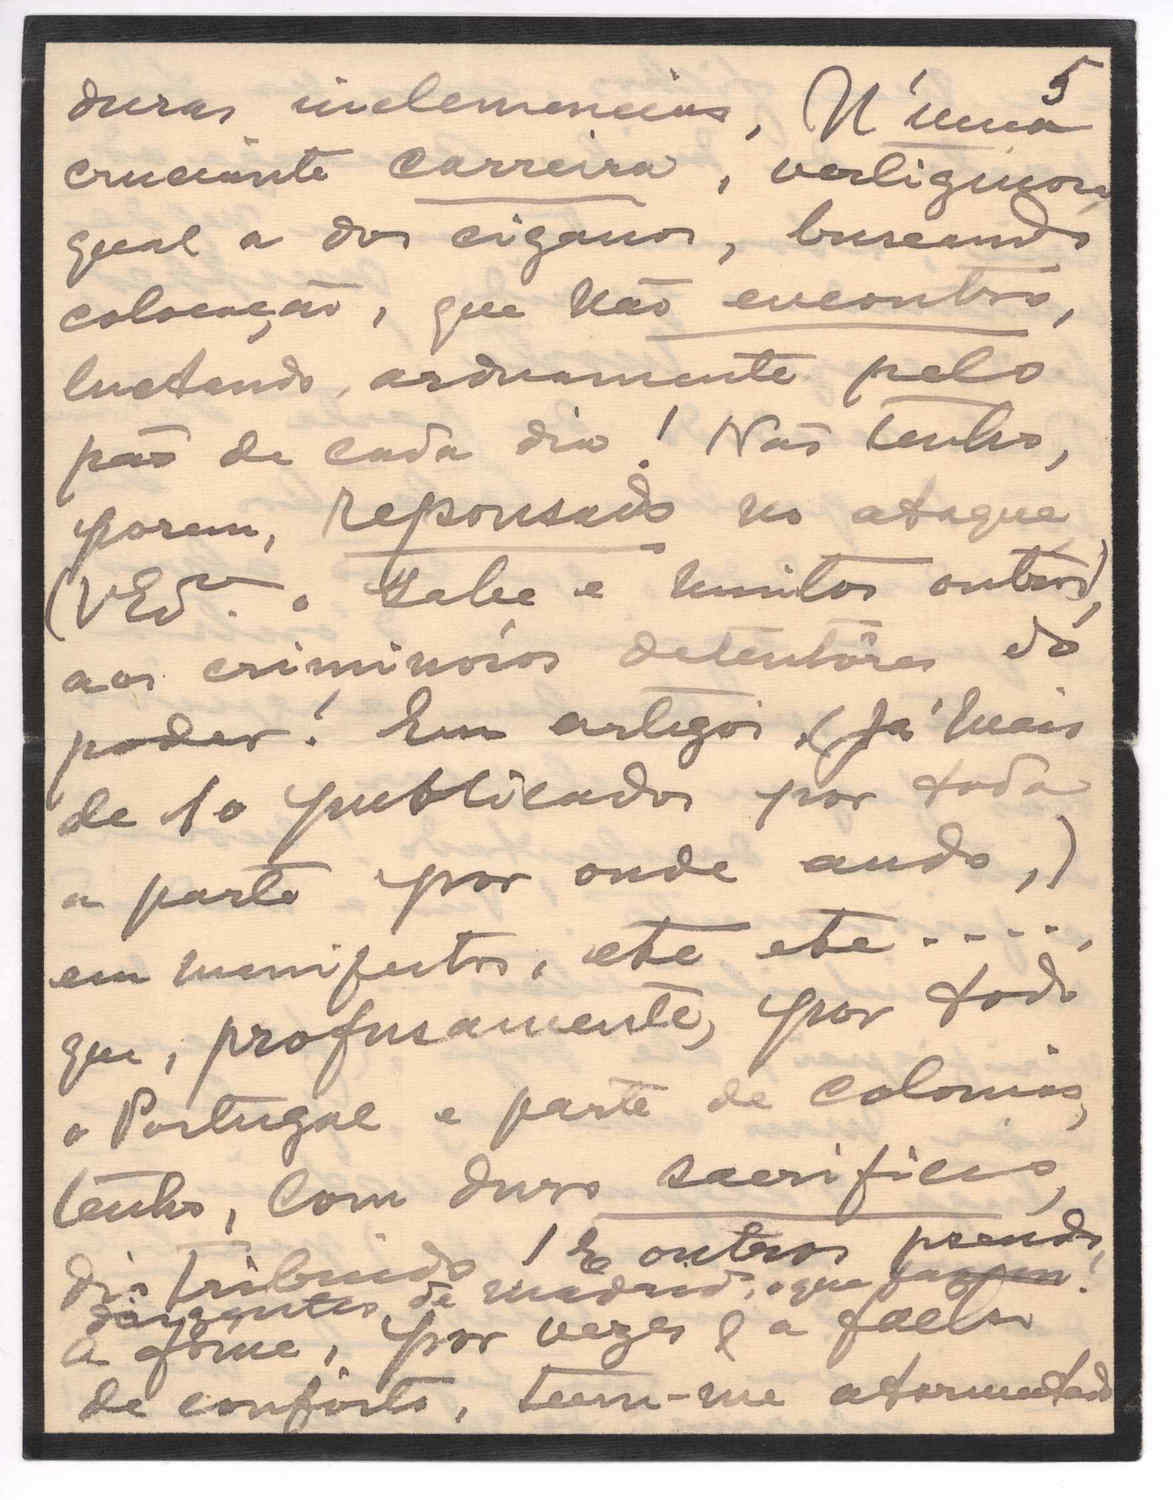 5
duras inclemencias, N'uma
cruciante carreira, vertiginosa,
qual a dos ciganos, buscando
colocação, que não encontro,
luctando, arduamente pelo
pão de cada dia! Não tenho,
porem, repousado no ataque
(V Exª. sabe e muitos outros),
aos criminósos detentôres do
poder! Em artigos, (já mais
de 10 publicados por toda
a parte por onde ando,)
em manifestos, etc etc.....,
que, profusamente, por todo
o Portugal e parte de colonias,
tenho, com duro sacrificio,
distribuido! E outros
de Madrid, o que
a fôme, por vezes e a falta
de conforto, teem-me atormentado